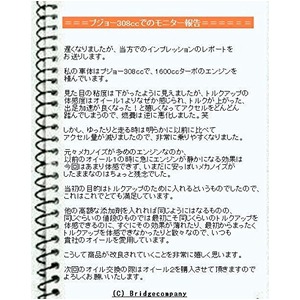 ===プジョー308ccでのモニター報告===
遅くなりましたが、当方でのインプレッションのレポートを
お送りします。
私の車体はプジョー308ccで、1600ccターボのエンジンを
積んでいます。
見た目の粘度は下がったように見えましたが、トルクアップの
体感度はオイール1よりなぜか感じられ、トルクが上がった、
出足加速が良くなった！と嬉しくなってアクセルをどんどん
踏んでしまうので、燃費は逆に悪化しました。笑
しかし、ゆったりと走る時は明らかに以前に比べて
アクセル量が減りましたので、非常に乗りやすくなりました。
元々メカノイズが多めのエンジンなのか、
以前のオイール1の時に急にエンジンが静かになる効果は
今回はあまり体感できず、いまだに安っぽいメカノイズが
したままなのはちょっと残念でした。
当初の目的はトルクアップのために入れるというものでしたので、
これはこれでとても満足しています。
他の高額な添加剤を入れれば同じようにはなるものの、
同じぐらいの値段のものでは最初こそ同じぐらいのトルクアップを
体感できるのに、すぐにその効果が薄れたり、最初からまったく
トルクアップを体感できなかったりと散々なので、いつも
貴社のオイールを愛用しています。
こうして商品が改良されていくことを非常に嬉しく思います。
次回のオイル交換の際はオイール2を購入させて頂きますので
よろしくお願いいたします。
(C) Bridgecompany